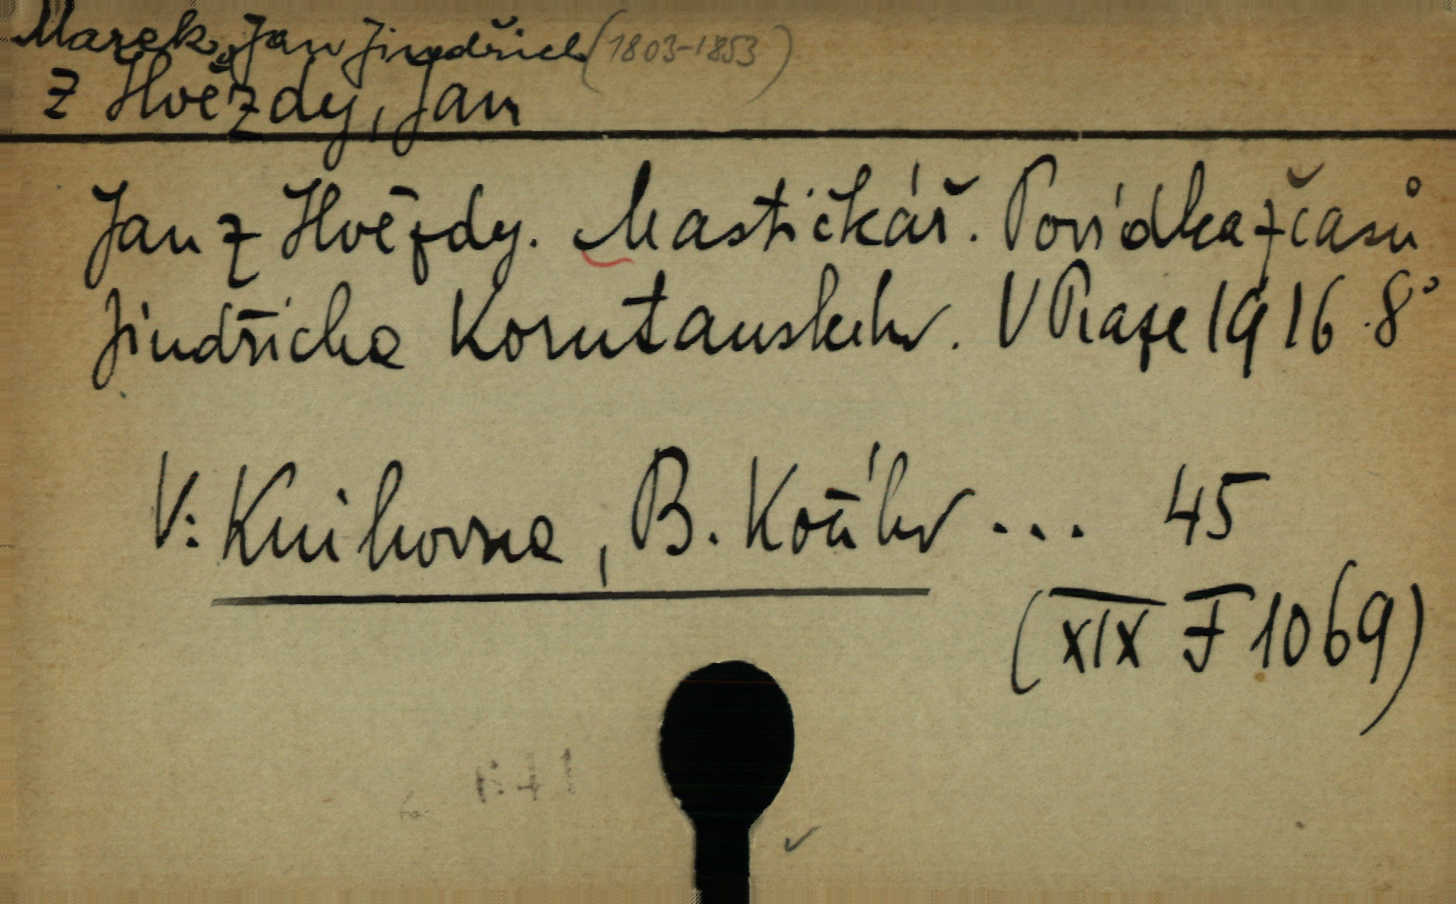 Marek, Jan Jindřich (1803-1853)
z Hvězdy, Jan
Jan z Hvězdy. Mastičkář. Povídka z časů
Jindřicha Korutanského. V Praze 1916. 8°
V: Knihovna, B. Kočího ... 45
(XIX F 1069)